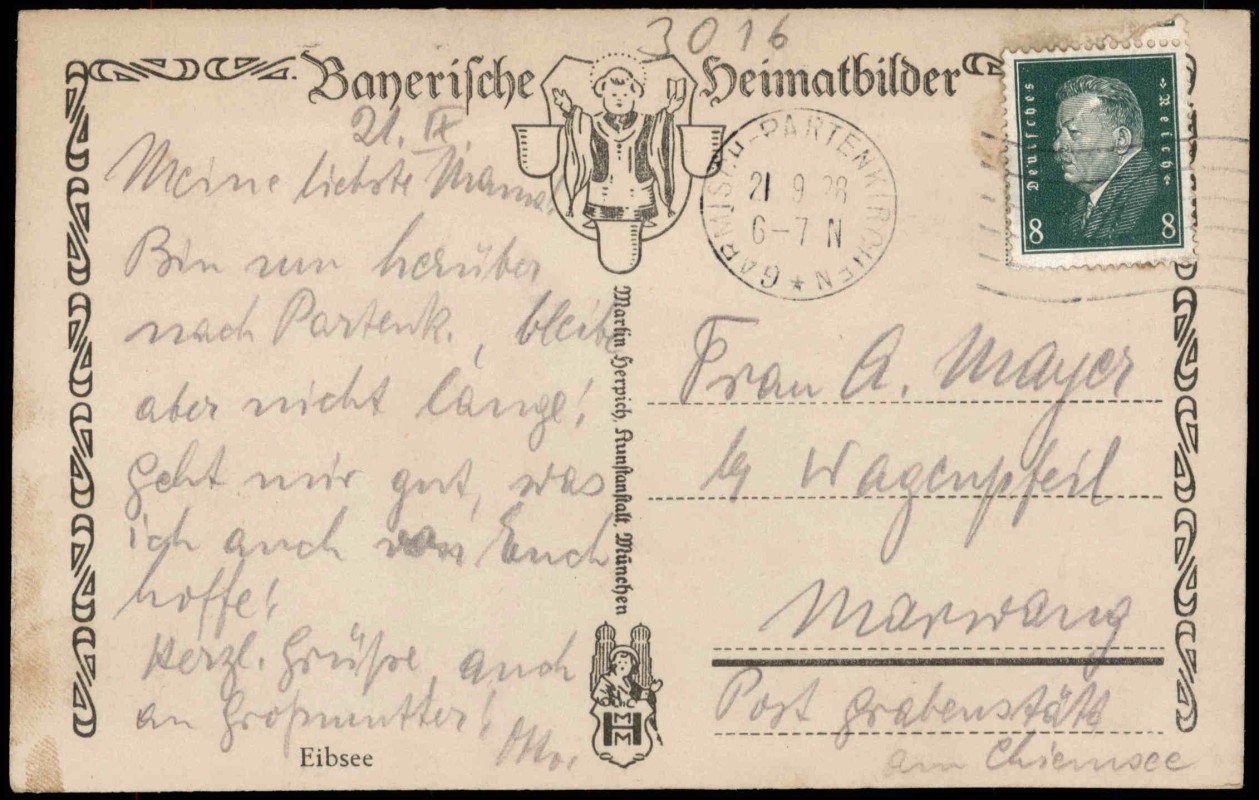 3016
Bayerische Heimatbilder
21. IX
Meine liebste Mama,
Bin nun herüber
nach Partenk., bleibe
aber nicht lange!
Geht mir gut, was
ich auch von Euch
hoffe!
Herzl. Grüße, auch
an Großmutter!
Otto.
Eibsee
Martin Herpich, Kunstanstalt, München
HM
Deutsches Reich
8 8
GARMISCH-PARTENKIRCHEN
21 9 28
6-7 N
Frau A. Mayer
b/ Wagenpfeil
Marwang
Post Grabenstätt
am Chiemsee